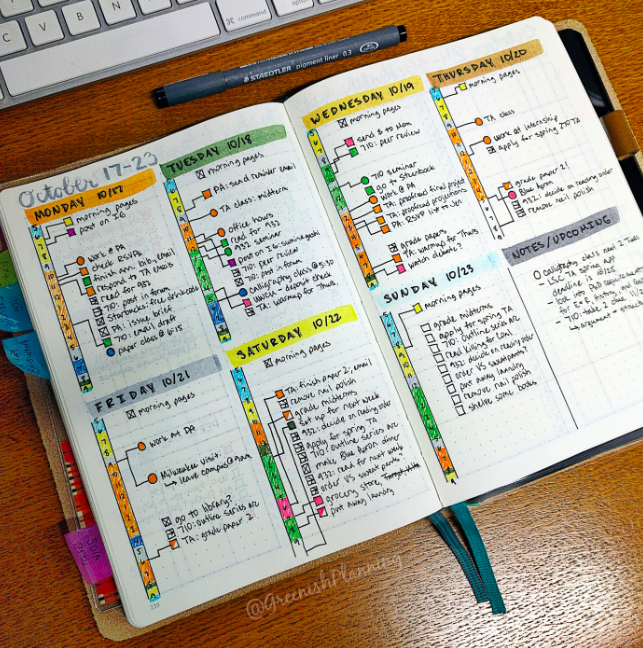 C
V
B
N
M
command
option
STAEDTLER pigment liner 0.3
October 17-23
MONDAY 10/17
morning pages
post on IG
work @ PA
check RSVPs
finish ann. bib, email
respond to TA emails
read for 932
710: post in forum
Starbucks: free drink code
PA: issue brief
710: email draft
paper class @ 6:15
TUESDAY 10/18
morning pages
PA: send reminder email
TA class: midterm
office hours
read for 932
932 seminar
post on IG:
710: peer review
710: post in forum
calligraphy class @ 5:30
Watch - deposit check
TA: warmup for Thurs
WEDNESDAY 10/19
morning pages
send $ to Mom
710: peer review
710 seminar
go to Starbucks
work @ PA
TA: proofread final project
TA: proofread projections
PA: RSVP list to Jen
grade papers
TA: warmup for Thurs
watch debate?
THURSDAY 10/20
morning pages
TA class
work at internship
apply for spring 710 TA
grade paper 2!
Blue Apron
932: decide on reading order
remove nail polish
FRIDAY 10/21
morning pages
work at PA
Milwaukee visit
↳ leave campus @ noon
go to library?
710: outline series arc
TA: grade paper 2
SATURDAY 10/22
morning pages
TA: finish paper 2, email
remove nail polish
grade midterms
set up for next week
932: decide on reading order
Apply for spring TA
710: outline series arc
make Blue Apron dinner
932: read for next week
order VS sweat pants
grocery store,
put away laundry
SUNDAY 10/23
morning pages
grade midterms
apply for spring TA
710: outline series arc
read Killing for Coal
932: decide on reading order
order VS sweatpants?
put away laundry
remove nail polish
shelve some books
NOTES/UPCOMING
calligraphy class next Tues
- LSC TA spring app
deadline is 10/25
- look over PhD requirements
- 710: take 2 class
↳ argument +
@GreenishPlanning